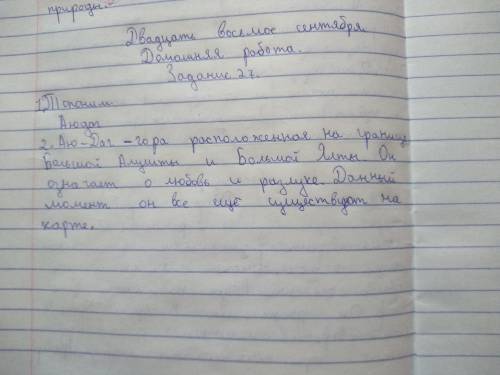 природы.
Двадцать восьмое сентября
Домашняя робота.
Задание 27.
1. Топоним
Аюдаг
2. Аю-Даг - гора расположенная на границе
Большой Алушты и Большой Ялты. Он
означает о любовь и разлуке. Данный
момент он все ещё существует на
карте.